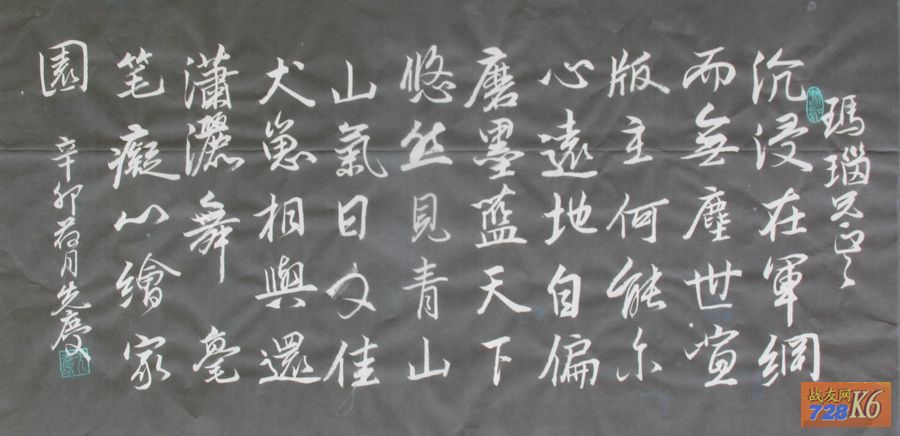 瑪瑙兄正之
沉浸在軍網
而無塵世喧
版主何能尔
心遠地自偏
磨墨藍天下
悠然見青山
山氣日又佳
犬崽相與還
瀟灑舞毫
笔癡心繪家
園
辛卯荷月先慶
战友网
728
K6